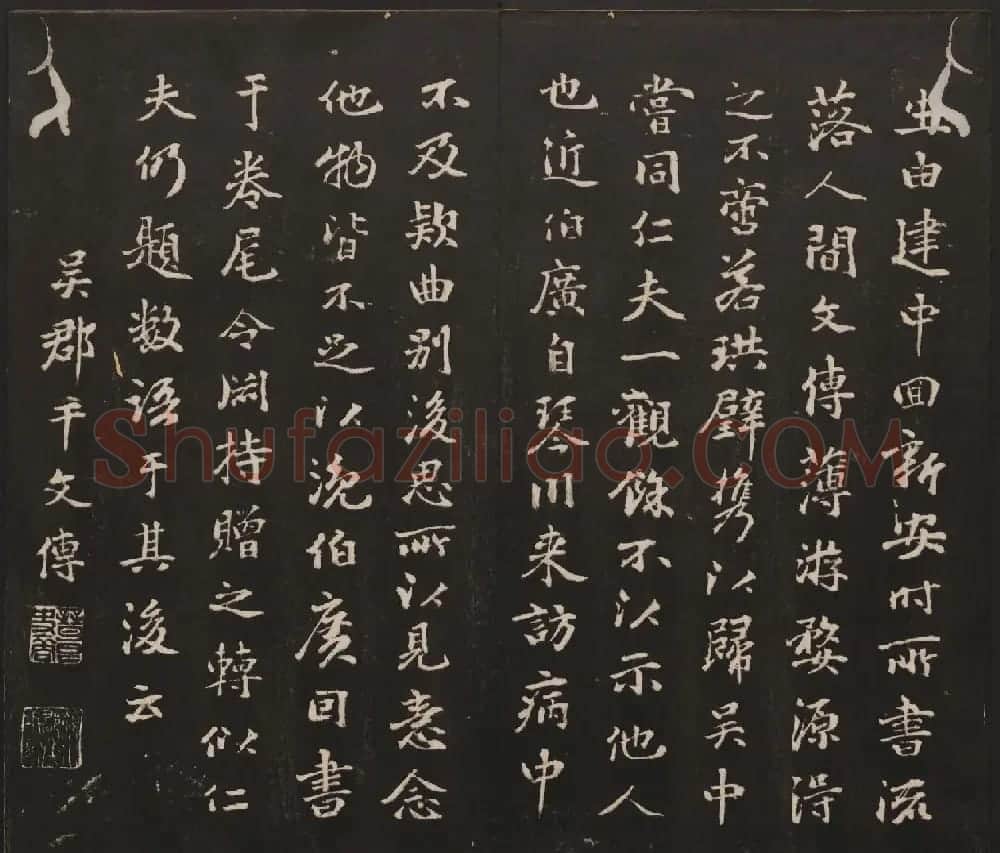 由建中囬新安时所書流
落人間文傳薄游婺源得
之不啻若珙璧携以歸吴中
嘗同仁夫一觀餘不以示他人
也近伯廣自琴川来訪病中
不及款曲别後思所以見意念
他物皆不足以浼伯廣回書
于卷尾令渊持贈之轉似仁
夫仍題数語于其後云
吴郡干文傳
Shufaziliao.COM